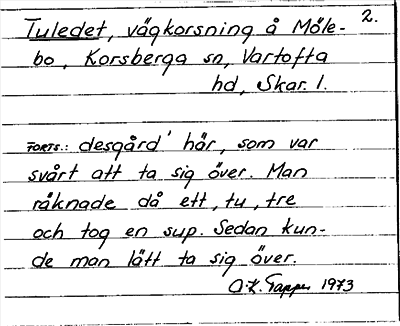 2.
Tuledet, vägkorsning å Möle-
bo, Korsberga sn, Vartofta
hd, Skar. l.
FORTS.: desgård' här, som var
svårt att ta sig över. Man
räknade då ett, tu, tre
och tog en sup. Sedan kun-
de man lätt ta sig över.
A.K. 1973